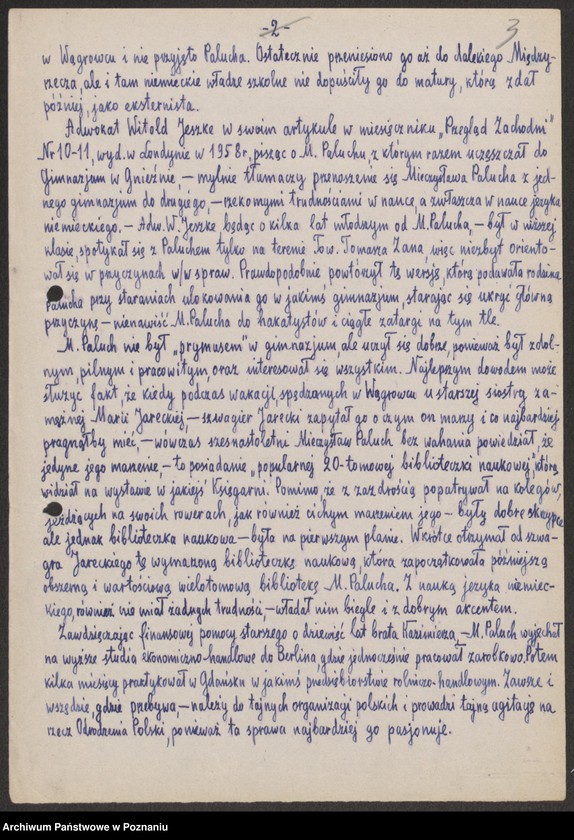 -2-
3
w Wągrowcu i nie przyjęto Palucha. Ostatecznie przeniesiono go aż do dalekiego Między-
rzecza, ale i tam niemieckie władze szkolne nie dopuściły go do matury, którą zdał
później, jako eksternista.
Adwokat Witold Jeszke w swoim artykule w miesięczniku „Przegląd Zachodni"
Nr 10-11, wyd. w Londynie w 1958 r, pisząc o M. Paluchu, z którym razem uczęszczał do
Gimnazjum w Gnieźnie, – mylnie tłumaczy przenoszenie się Mieczysława Palucha z jed-
nego gimnazjum do drugiego, – rzekomymi trudnościami w nauce, a zwłaszcza w nauce języka
niemieckiego. – Adw. W. Jeszke, będąc o kilka lat młodszym od M. Palucha, – był w niższej
klasie, spotykał się z Paluchem tylko na terenie Tow. Tomasza Zana, więc niezbyt oriento-
wał się w przyczynach w/w spraw. Prawdopodobnie, powtórzył tę wersję, którą podawała rodzina
Palucha przy staraniach ulokowania go w jakimś gimnazjum, starając się ukryć główną
przyczynę – nienawiść M. Palucha do hakatystów i ciągłe zatargi na tym tle.
M. Paluch nie był „prymusem" w gimnazjum, ale uczył się dobrze, ponieważ był zdol-
nym, pilnym i pracowitym, oraz interesował się wszystkim. Najlepszym dowodem może
służyć fakt, że kiedy podczas wakacji, spędzanych w Wągrowcu u starszej siostry za-
mężnej Marii Jareckiej, – szwagier Jarecki zapytał go o czym on marzy i co najbardziej
pragnąłby mieć, – wówczas szesnastoletni Mieczysław Paluch bez wahania powiedział, że
jedyne jego marzenie, – to posiadanie „popularnej 20-tomowej biblioteczki naukowej", którą
widział na wystawie w jakiejś Księgarni. Pomimo, że z zazdrością popatrywał na kolegów,
jeżdżących na swoich rowerach, jak również cichym marzeniem jego – były dobre skrzypce
ale jednak biblioteczka naukowa – była na pierwszym planie. Wkrótce otrzymał od szwa-
gra Jareckiego tę wymarzoną biblioteczkę naukową, która zapoczątkowała późniejszą
obszerną i wartościową wielotomową bibliotekę M. Palucha. Z nauką języka niemiec-
kiego, również nie miał żadnych trudności, – władał nim biegle i z dobrym akcentem.
Zawdzięczając finansowej pomocy starszego o dziewięć lat brata Kazimierza, – M. Paluch wyjechał
na wyższe studia ekonomiczno-handlowe do Berlina, gdzie jednocześnie pracował zarobkowo. Potem
kilka miesięcy praktykował w Gdańsku w jakimś przedsiębiorstwie rolniczo-handlowym. Zawsze i
wszędzie, gdzie przebywa, – należy do tajnych organizacji polskich i prowadzi tajną agitację na
rzecz Odrodzenia Polski, ponieważ ta sprawa najbardziej go pasjonuje.
Archiwum Państwowe w Poznaniu